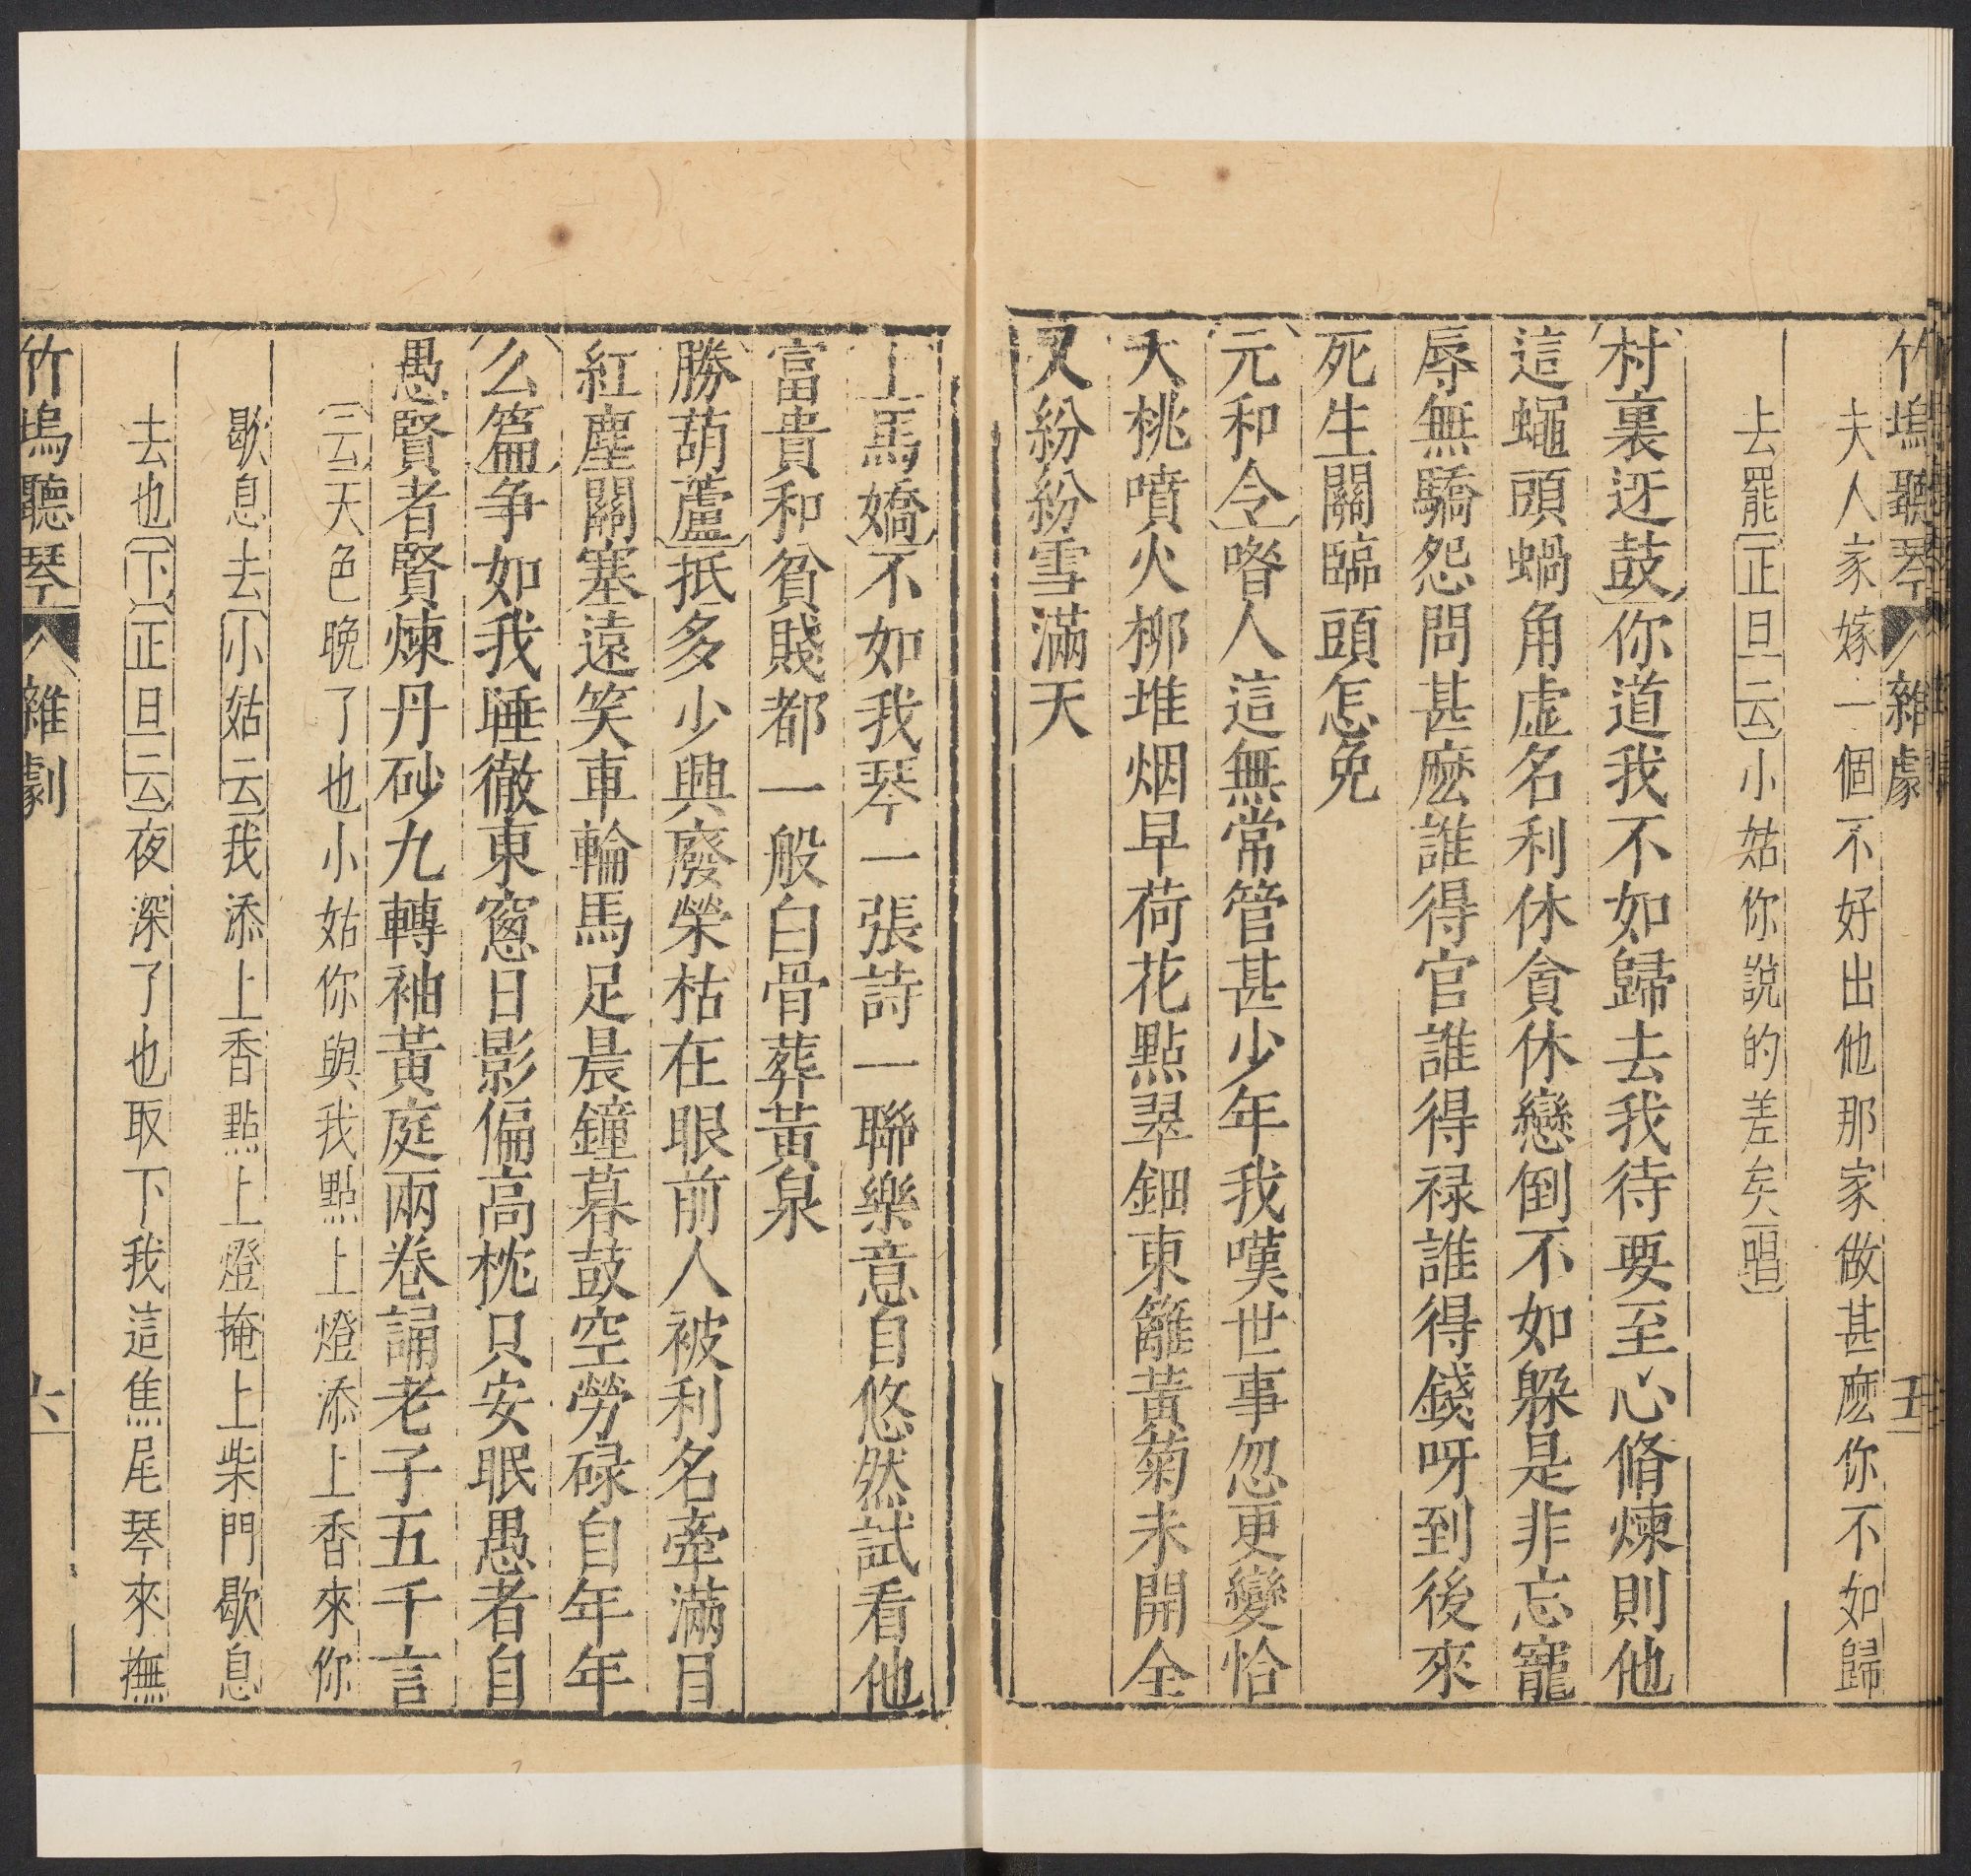 竹塢聽琴 雜劇 五
夫人家嫁一個不好出他那家做甚麽你不如歸
去罷正旦云小姑你說的差矣唱
村裏迓鼓你道我不如歸去我待要至心脩煉則他
這蠅頭蝸角虛名利休貪休戀倒不如躲是非忘寵
辱無驕怨問甚麽誰得官誰得禄誰得錢呀到後來
死生關臨頭怎免
元和令喒人這無常管甚少年我嘆世事忽更變恰
夭桃噴火柳堆烟早荷花點翠鈿東籬黃菊未開全
又紛紛雪滿天
上馬嬌不如我琴一張詩一聯樂意自悠然試看他
富貴和貧賤都一般白骨葬黃泉
勝葫蘆抵多少興廢榮枯在眼前人被利名牽滿目
紅塵關塞遠笑車輪馬足晨鐘暮鼓空勞碌自年年
么篇争如我睡徹東窻日影偏高枕只安眠愚者自
愚賢者賢煉丹砂九轉袖黃庭兩卷誦老子五千言
云天色晚了也小姑你與我點上燈添上香來你
歇息去小姑云我添上香點上燈掩上柴門歇息
去也下正旦云夜深了也取下我這焦尾琴來撫
竹塢聽琴 雜劇 六